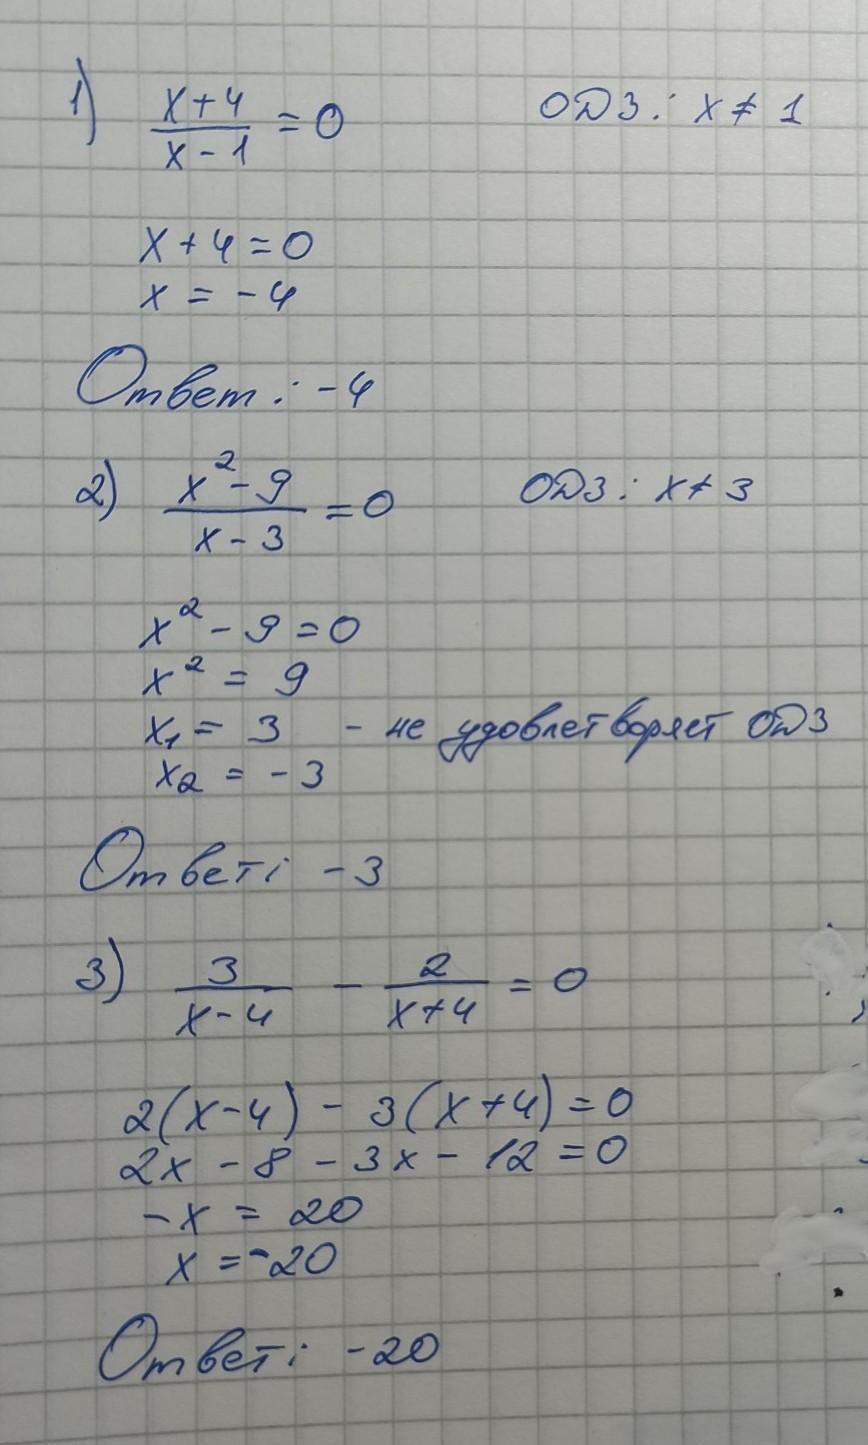 1) (x+4)/(x-1) = 0 ОДЗ: x ≠ 1
x + 4 = 0
x = -4
Ответ: -4
2) (x²-9)/(x-3) = 0 ОДЗ: x ≠ 3
x² - 9 = 0
x² = 9
x₁ = 3 - не удовлетворяет ОДЗ
x₂ = -3
Ответ: -3
3) 3/(x-4) - 2/(x+4) = 0
2(x-4) - 3(x+4) = 0
2x - 8 - 3x - 12 = 0
-x = 20
x = -20
Ответ: -20